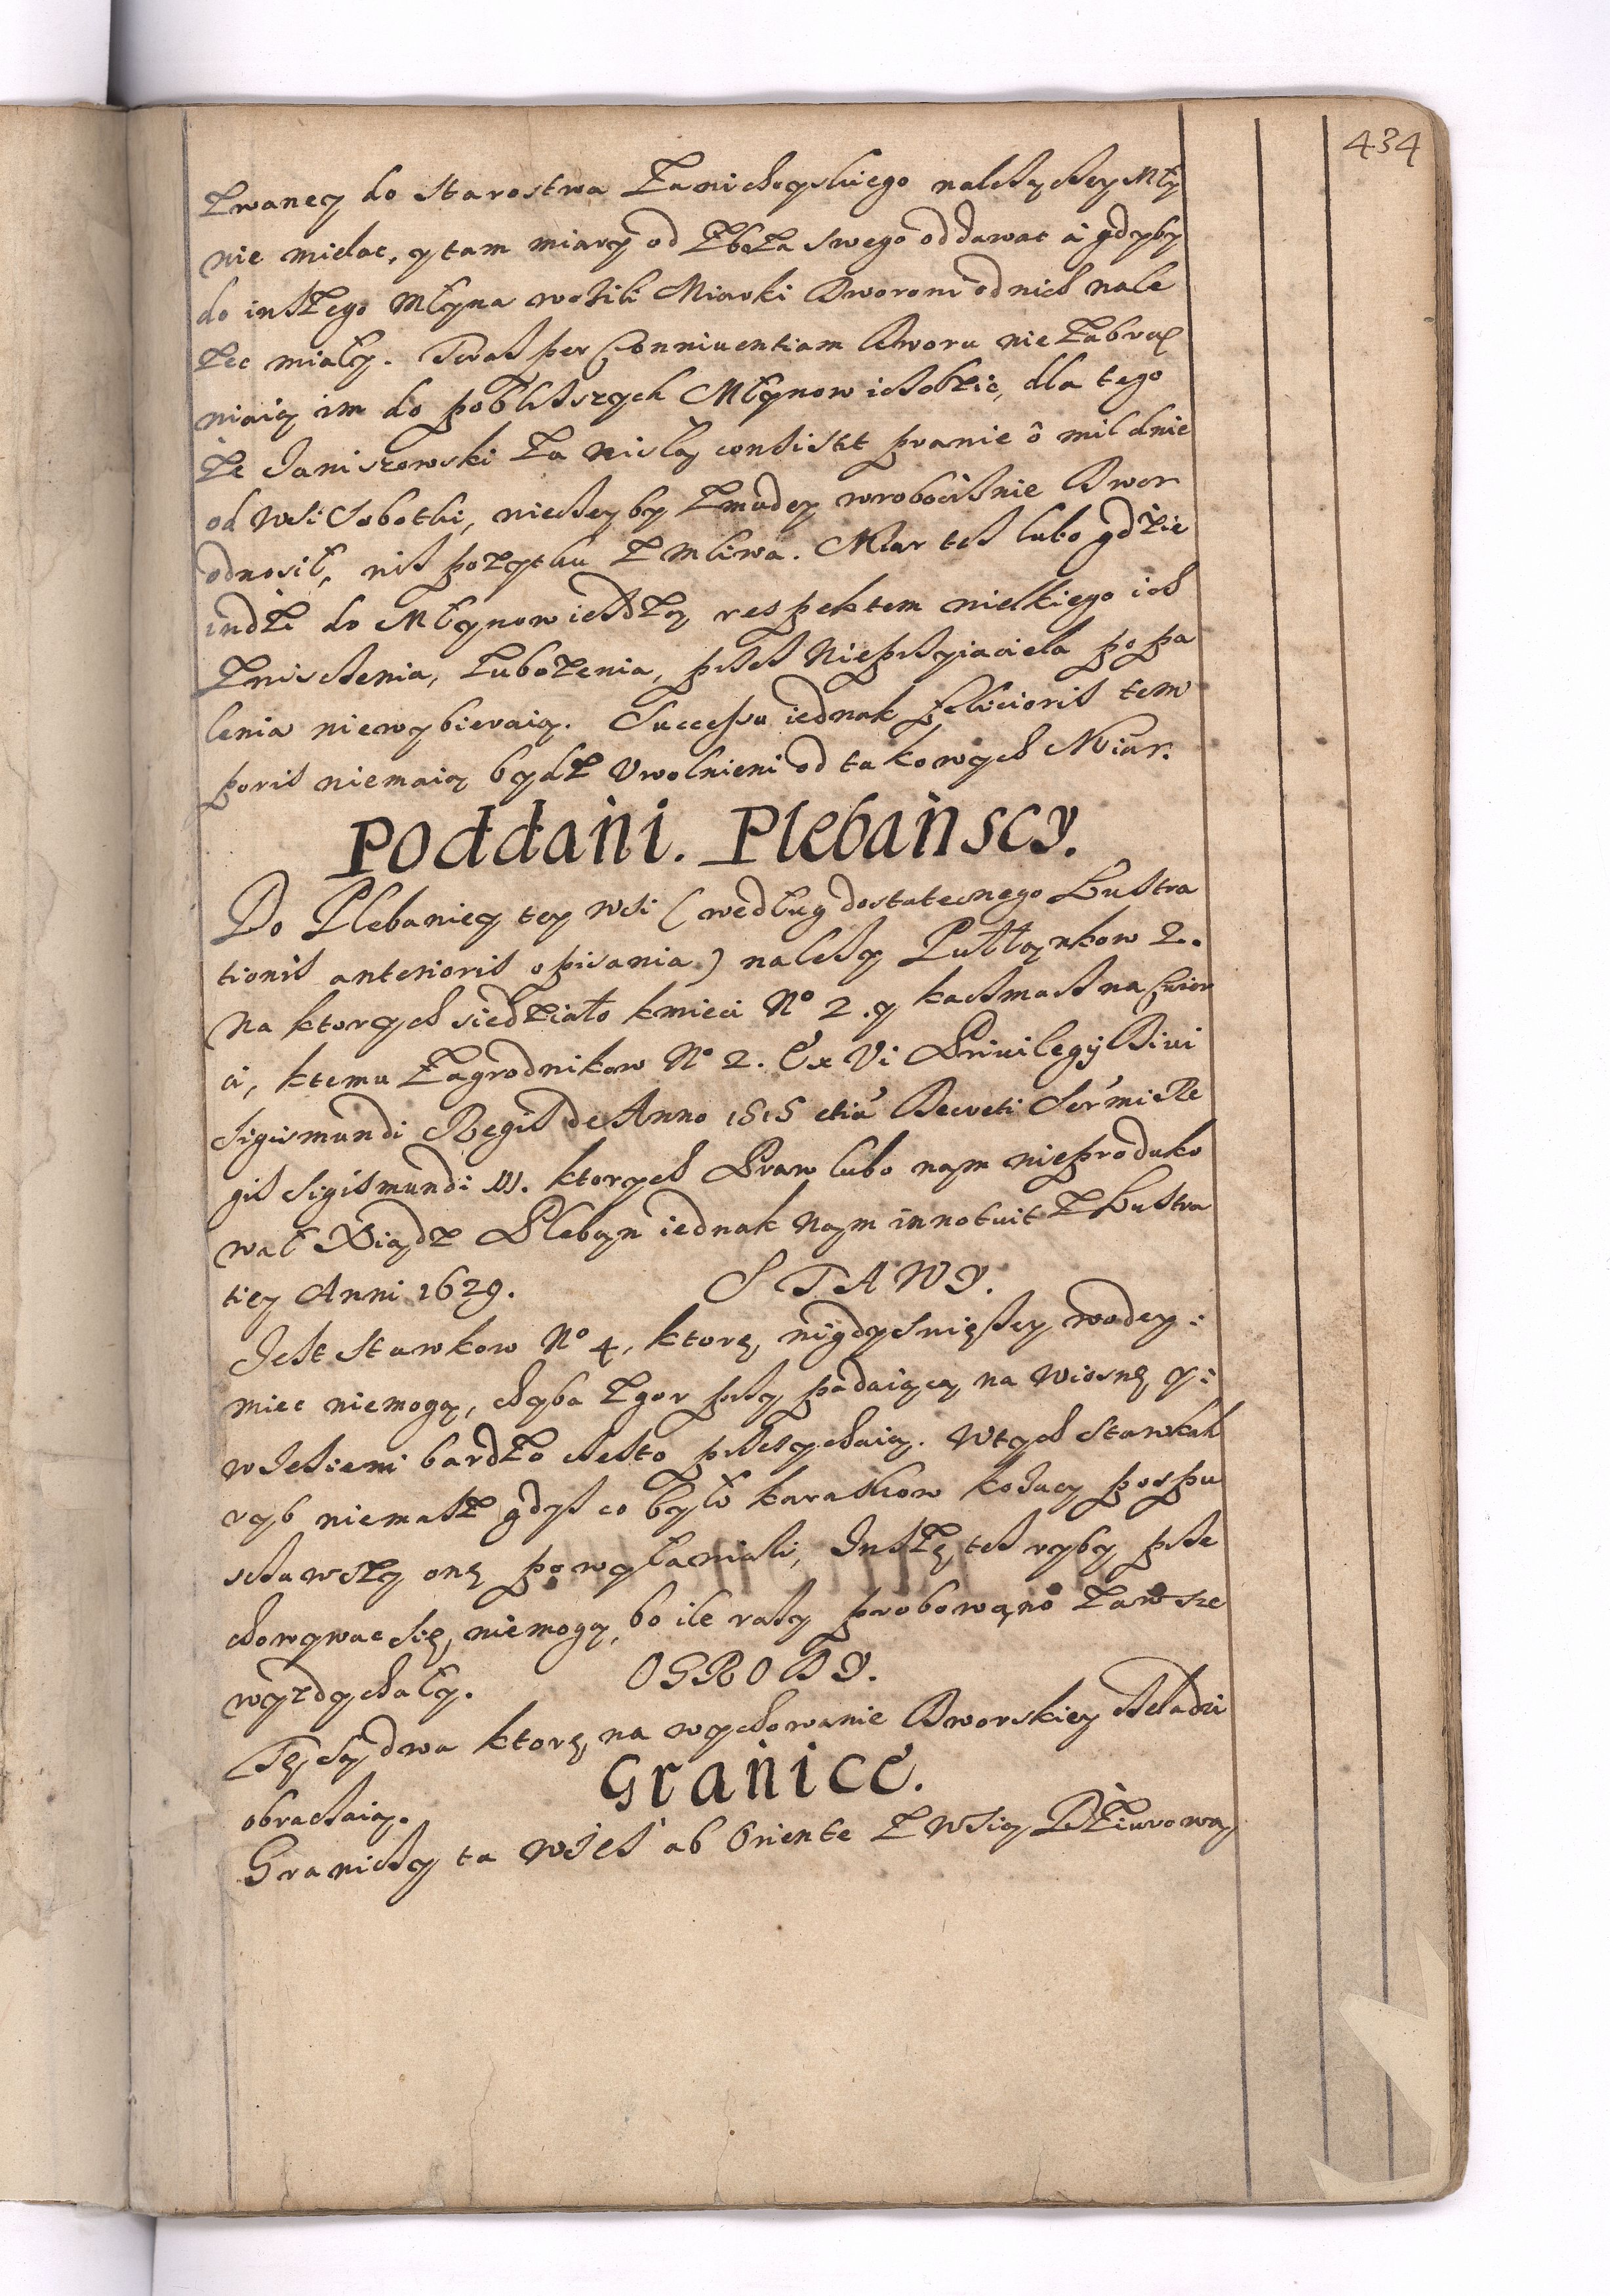 434
zwaney do Starostwa Zawichoyskiego należączey Mły
nie mielac, y tam miary od zboża swego oddawac á gdyby
do inszego Młyna wozili Miarki Dworowi od nich nale
żec miały. Teraz per Conniuentiam Dworu nie zabra
niaią im do pobliszych Młynow iezdzic, dla tego
że Janiszowski za Wisłą consistit prawie ô mil dwie
od Wsi Sobotki, wieczey by zmudy w robociznie Dwor
odnosił, niz pozytku z mliwa. Miar tez lubo gdzie
indzi do Młynow iezdzą, respektem wielkiego ich
zniszczenia, zubozenia, przez Nieprzyiaciela popa
lenia niewybieraią. Successu iednak felicioris tem
poris niemaią bydz Uwolnieni od takowych Miar.
Poddani. Plebanscy.
Do Plebaniey tey Wsi (według dostatecznego Lustra
tionis anterioris opisania) należy Pułłankow 2.
Na ktorych siedziało kmieci No 2. y kaczmarz na Cwier
ci, ktemu Zagrodnikow No 2. Ex Vi Privilegij Divi
Sigismundi Regis de Anno 1515 etiã Decreti Ser̃mi Re
gis Sigismundi III. ktorych Praw lubo nąm nieproduko
wał Xiądz Pleban iednak Nąm innotuit z Lustra
tiey Anni 1629.
STAWY.
Jest Stawkow No 4, ktorę, nigdy swięszey wody
miec niemogą, chyba z gor przy padaiącą na Wiosnę y
w Jesieni bardzo często przesychaią. W tych Stawkach
ryb niemasz gdyz co było karaskow kozacy pospu
sczawszy onę powyławiali, Inszę, tez ryby prze
chowywac się, niemogą, bo ile razy probowąno zawsze
wyzdychały.
OGRODY.
Tę, są, dwa ktorę, na wychowanie Dworskiey czeladzi
obracaią.
Granice.
Graniczy ta Wies ab Oriente z Wsią Dziurową